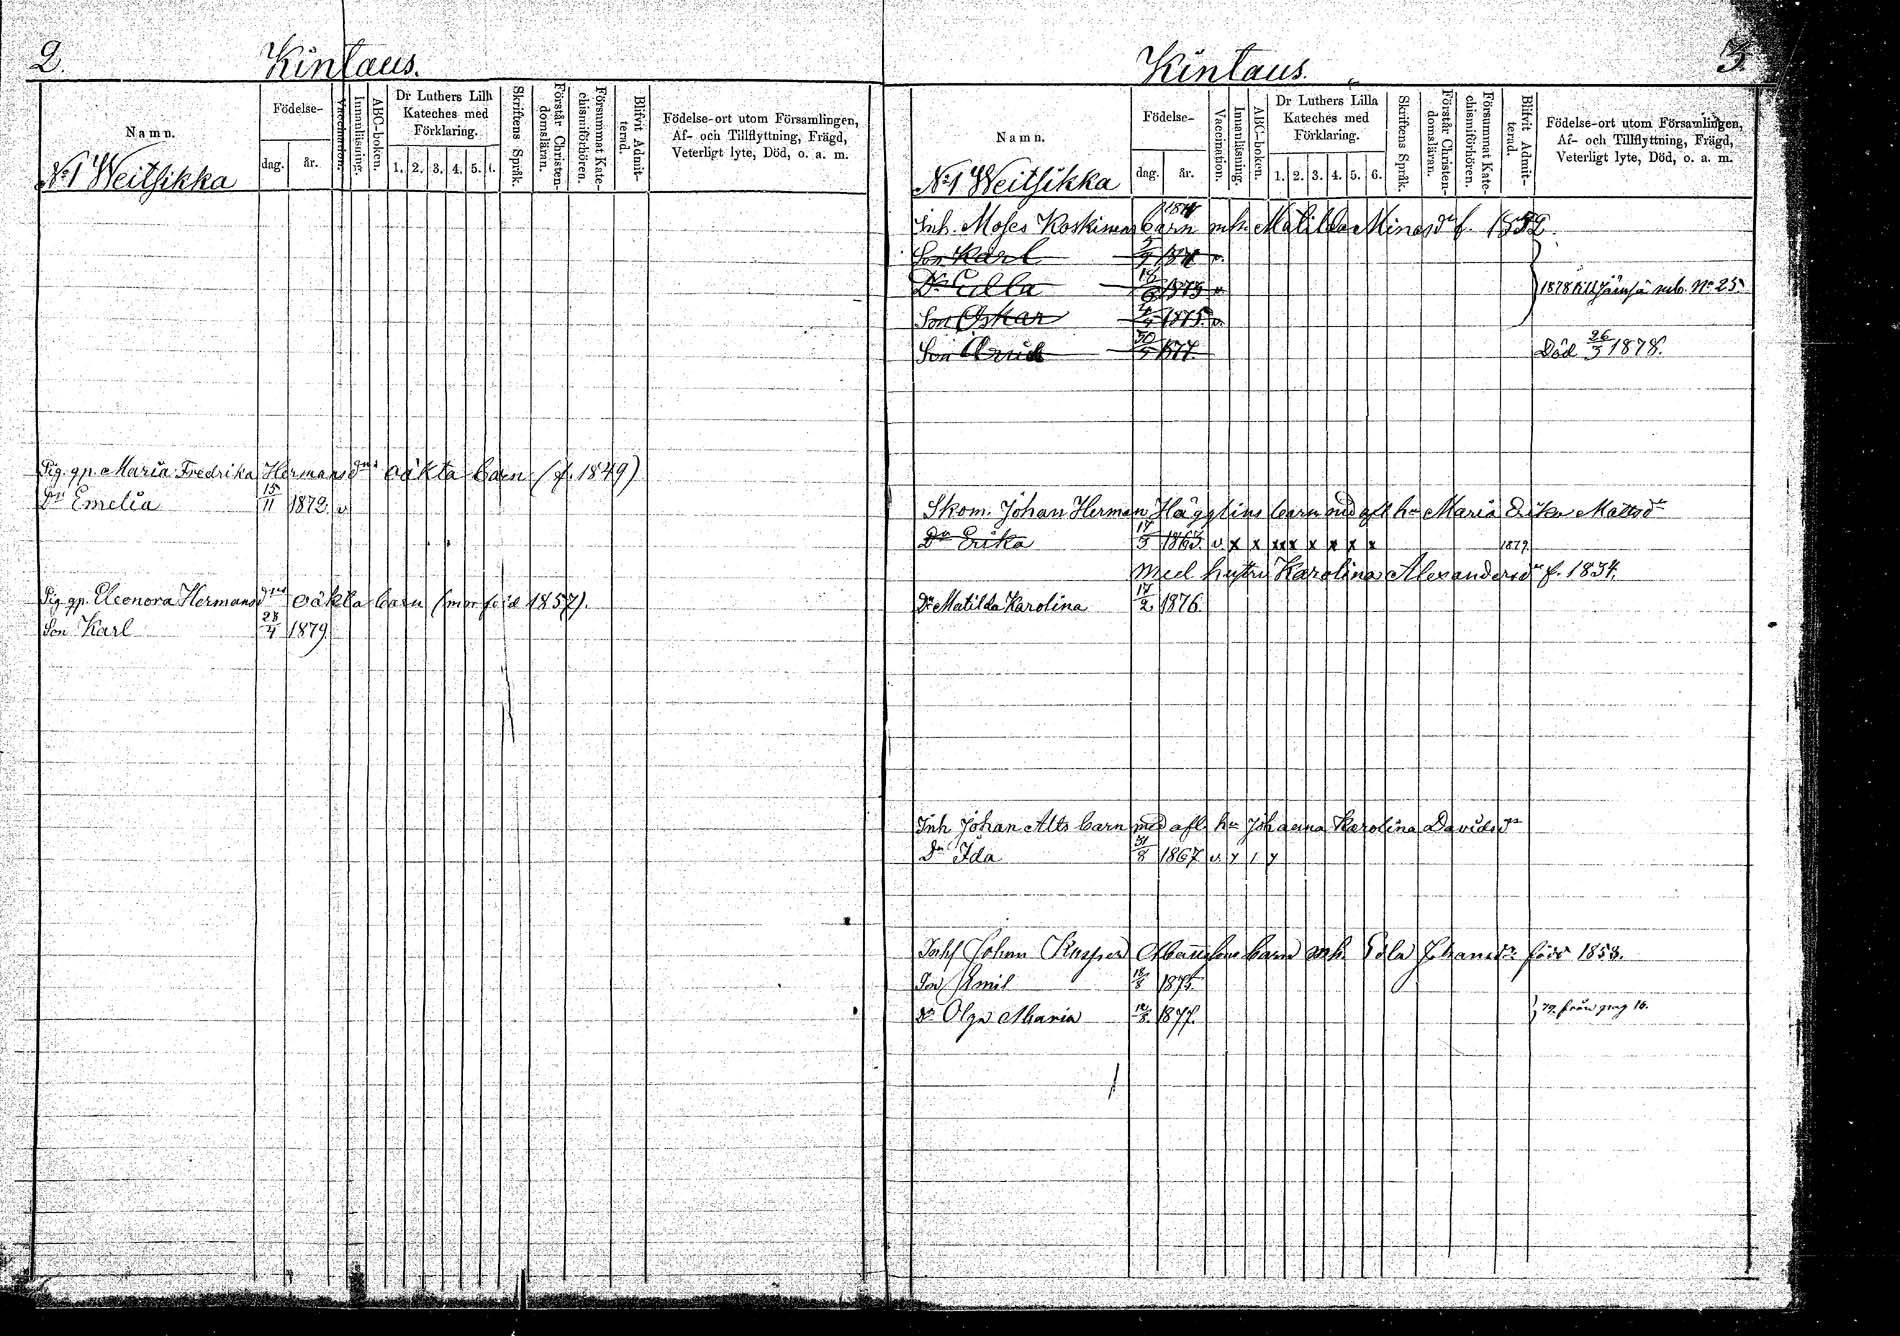 2.
Kintaus.
Namn.
Födelse-
dag. år.
Vaccination.
Innanläsning.
ABC-boken.
Dr Luthers Lilla Kateches med Förklaring.
1. 2. 3. 4. 5. 6.
Skriftens Språk.
Förstår Christen-domsläran.
Försummat Kate-chismiförhören.
Blifvit Admit-terad.
Födelse-ort utom Församlingen,
Af- och Tillflyttning, Frägd,
Veterligt lyte, Död, o. a. m.
No 1 Weitsikka
Pig. gp. Maria Fredrika Hermansdrs oäkta barn (f. 1849)
Dr Emelia 15/11 1872 v
Pig. gp. Eleonora Hermansdrs oäkta barn (mor född 1857).
Son Karl 28/4 1879
3.
Kintaus.
Namn.
Födelse-
dag. år.
Vaccination.
Innanläsning.
ABC-boken.
Dr Luthers Lilla
Kateches med
Förklaring.
1. 2. 3. 4. 5. 6.
Skriftens Språk.
Förstår Christen-domsläran.
Försummat Kate-chismiförhören.
Blifvit Admit-terad.
Födelse-ort utom Församlingen,
Af- och Tillflyttning, Frägd,
Veterligt lyte, Död, o. a. m.
No 1 Weitsikka
Inh. Moses Koskinens barn mh. Matilda Minasdr f. 1852.
Son Karl v.
Dr Edla 1873 v
Son Oskar 1875. v.
1878 till Jämsä No 25.
Son 30 1877. Död 26/3 1878.
Skom. Johan Herman Hägglins barn med afl. hu Maria Erika Mattsdr
Dr Erika 17/5 1863. v. x x xx x x x x x 1879.
med hustru Karolina Alexandersdr f. 1834.
Dr Matilda Karolina 17/2 1876.
Inh Johan Alts barn med afl. hu Johanna Karolina Davidsdr
Dr Ida 31/8 1867 v. y 1 y
Johan Kasper barn mh. Edla Johansdr född 1858.
Son Emil 18/8 1875.
Dr Olga Maria 12/8. 1877.
79. från pag 16.